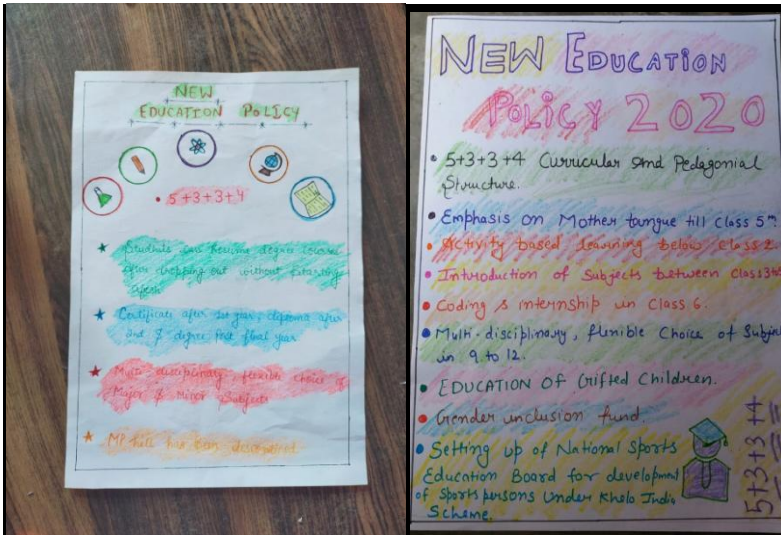 NEW
EDUCATION POLICY
5+3+3+4
Students can resume degree course
after dropping out without starting
afresh
Certificate after 1st year, diploma after
2nd & degree Post final year
Multi disciplinary, flexible choice of
Major & Minor Subjects
MPhil has been discontinued
NEW EDUCATION
POLICY 2020
5+3+3+4 Curricular and Pedagonial
Structure.
Emphasis on Mother toungue till Class 5th.
Activity based learning below Class 2.
Introduction of Subjects between Class 3to5
Coding & internship in Class 6.
Multi-disciplinary, flexible Choice of Subje
in 9 to 12.
EDUCATION OF Gifted Children.
Gender inclusion fund.
Setting up of National Sports
Education Board for development
of Sports persons Under Khelo India
Scheme.
5+3+3+4